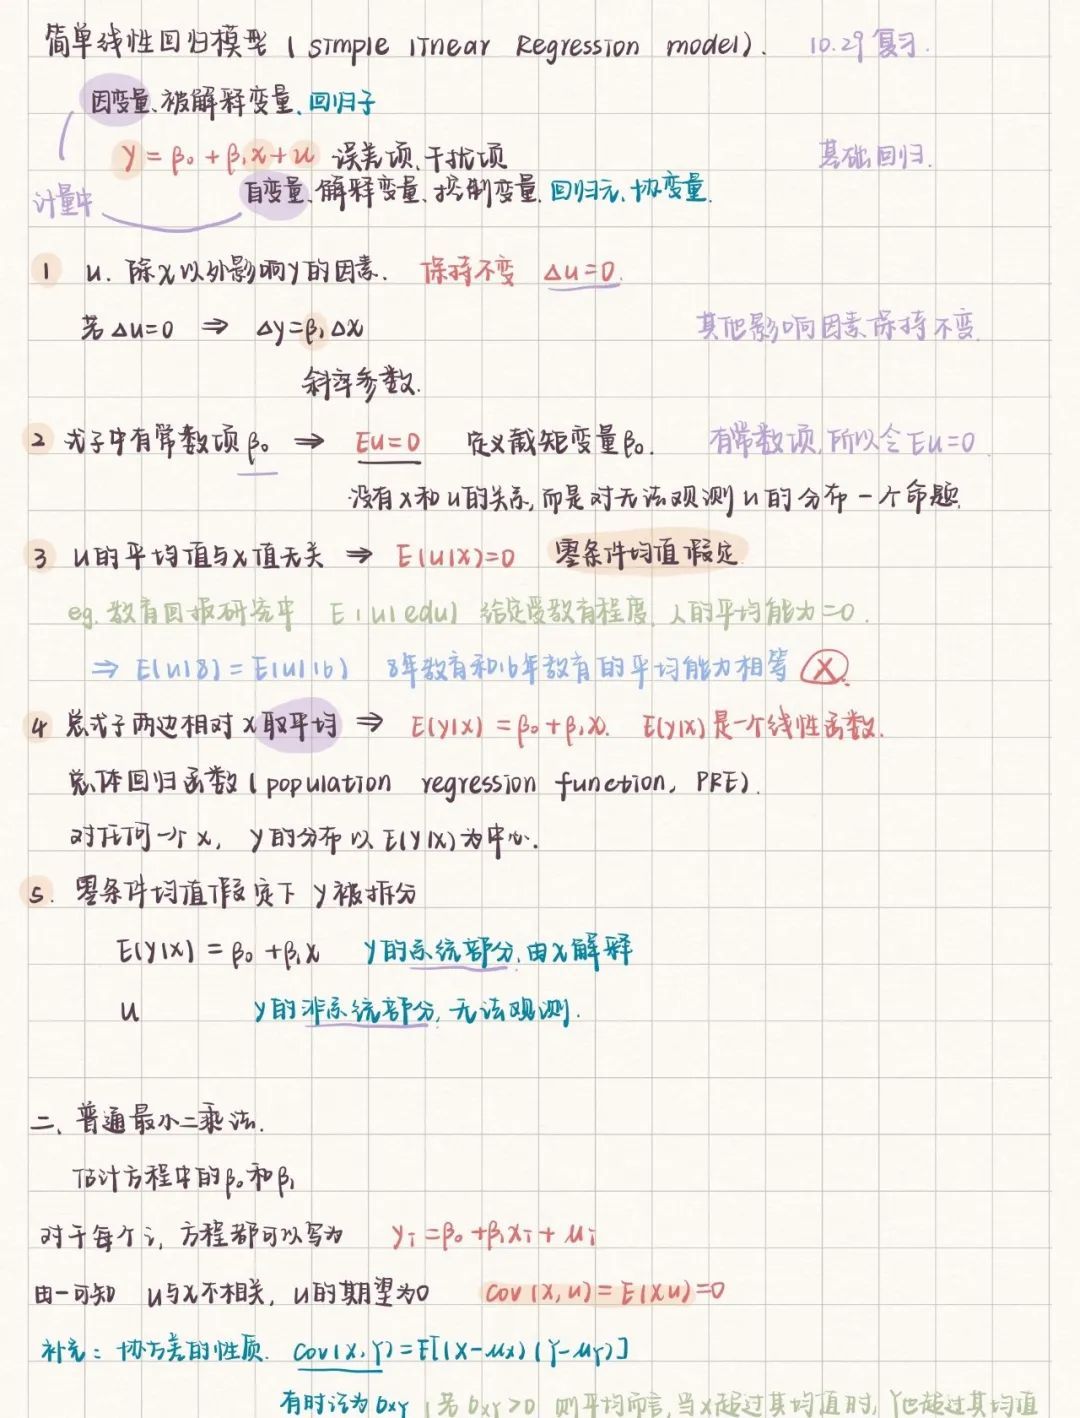 简单线性回归模型 ( simple linear Regression model). 10.29 复习.
因变量、被解释变量、回归子
y = β₀ + β₁x + u 误差项、干扰项 基础回归.
计量中 自变量、解释变量、控制变量、回归元、协变量.
1 u. 除x以外影响y的因素. 保持不变 Δu=0.
若 Δu=0 ⇒ Δy=β₁Δx 其他影响因素保持不变.
斜率参数.
2 式子中有常数项β₀ ⇒ Eu=0 定义截矩变量β₀. 有常数项,所以令Eu=0
没有x和u的关系,而是对无法观测u的分布一个命题.
3 u的平均值与x值无关 ⇒ E(u|x)=0 零条件均值假定
eg. 教育回报研究中 E(u|edu) 给定受教育程度, 人的平均能力=0.
⇒ E(u|8) = E(u|16) 8年教育和16年教育的平均能力相等 X
4 总式子两边相对x取平均 ⇒ E(y|x) = β₀ + β₁x. E(y|x)是一个线性函数.
总体回归函数 ( population regression function, PRE).
对任何一个x, y的分布以E(y|x)为中心.
5. 零条件均值假定下 y被拆分
E(y|x) = β₀ + β₁x y的系统部分,由x解释
u y的非系统部分, 无法观测.
二、普通最小二乘法.
估计方程中的β₀和β₁
对于每个i, 方程都可以写为 yᵢ = β₀ + β₁xᵢ + μᵢ
由一可知 u与x不相关, u的期望为0 Cov (x,u) = E(xu) = 0
补充: 协方差的性质. Cov(X,Y) = E[(X-μx)(Y-μY)]
有时记为 бxy (若 бxy>0 则平均而言,当X超过其均值时, Y也超过其均值